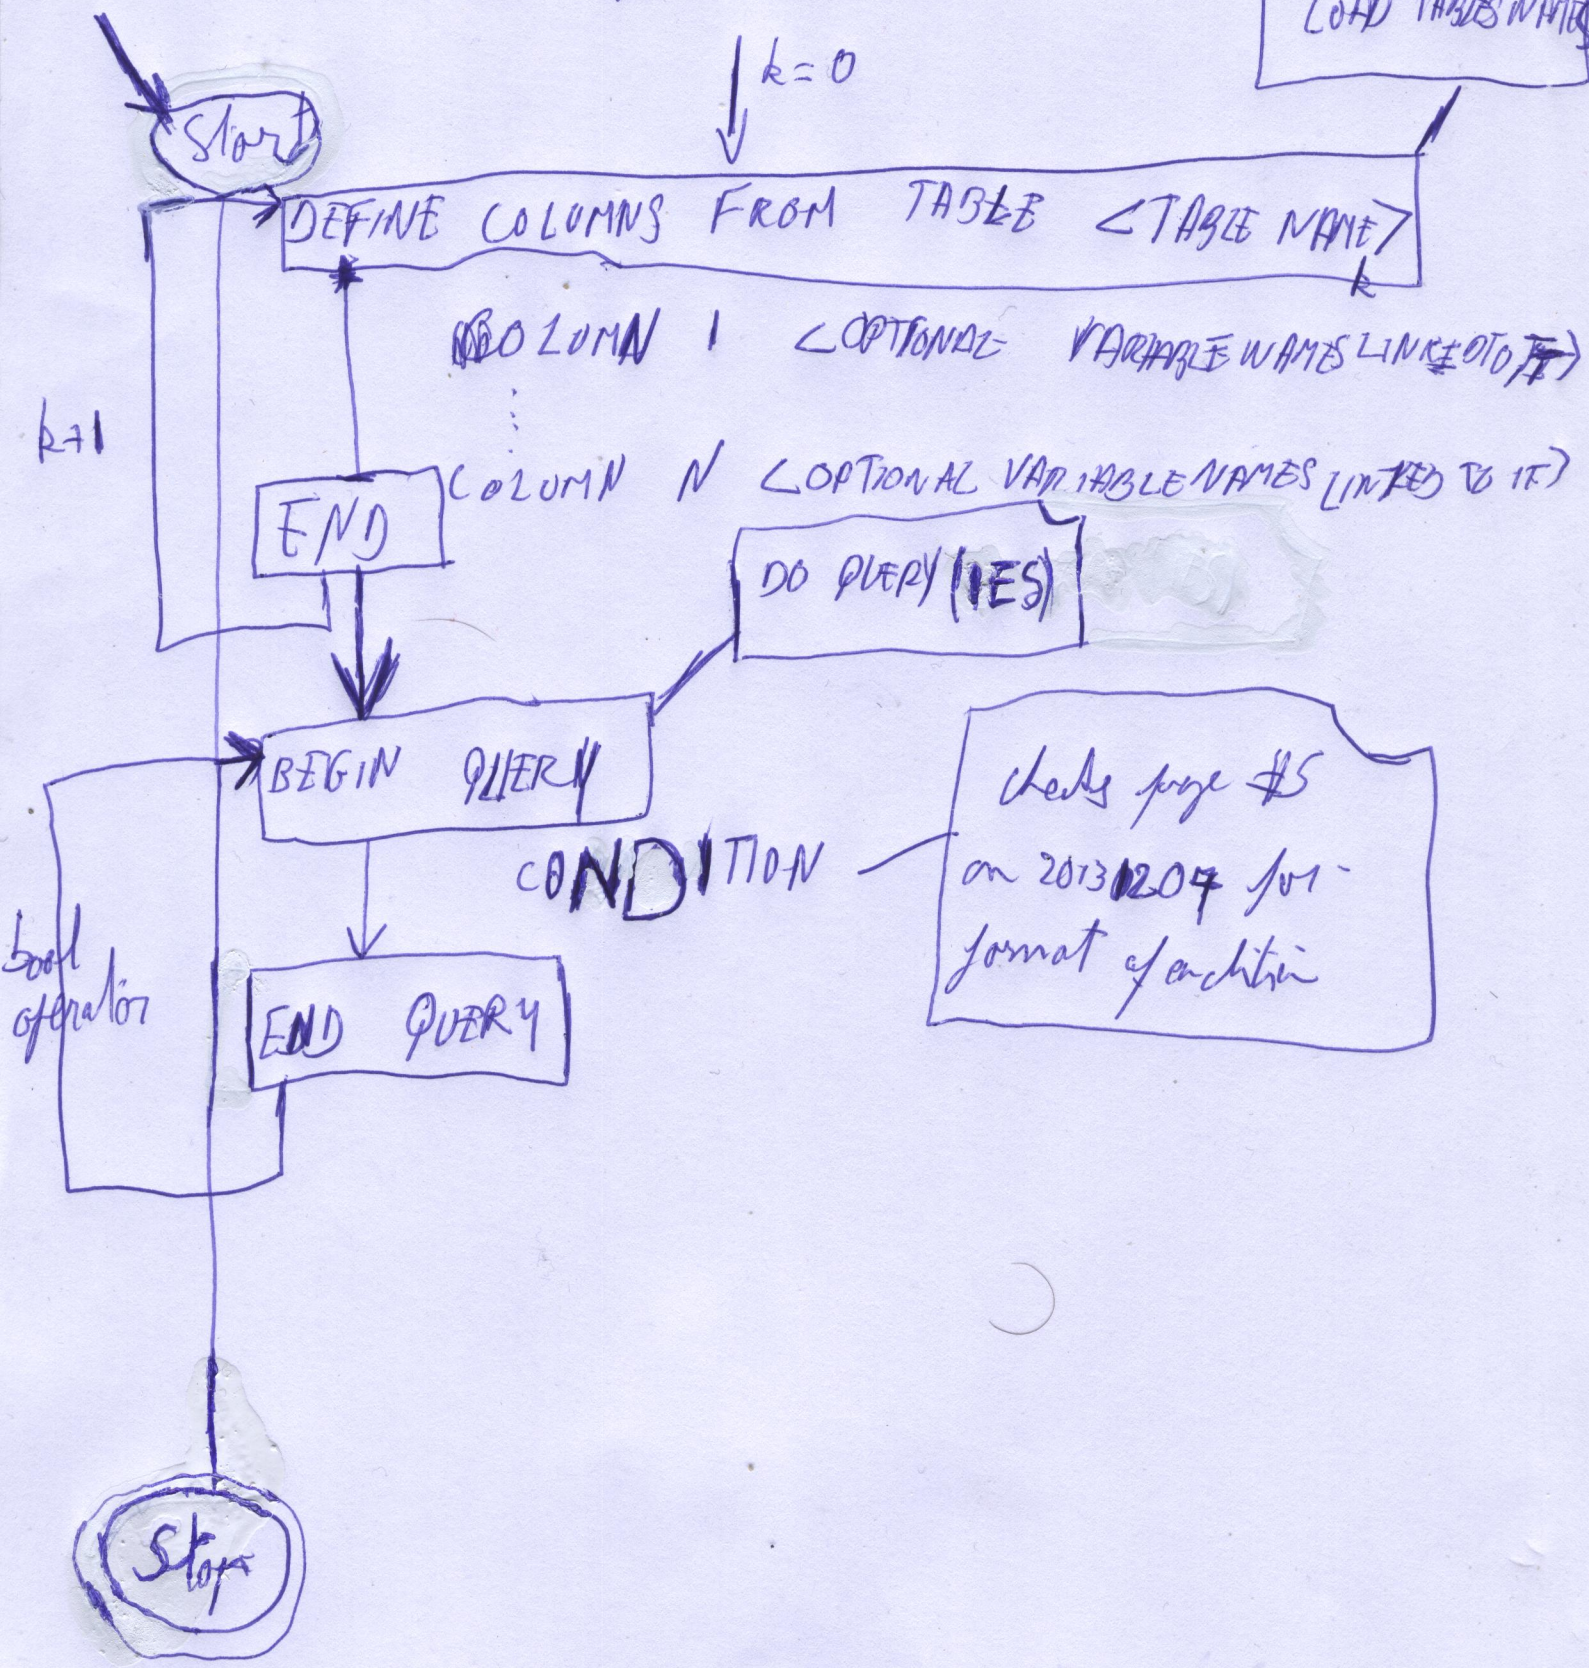 LOAD TABLES NAMES
k=0
Start
DEFINE COLUMNS FROM TABLE <TABLE NAME>
k
COLUMN 1 <OPTIONAL VARIABLE NAMES LINKED TO IT>
k+1
COLUMN N <OPTIONAL VARIABLE NAMES LINKED TO IT>
END
DO QUERY(IES)
BEGIN QUERY
CONDITION
page #5
on 20131207 for
format of condition
bool
operator
END QUERY
Stop